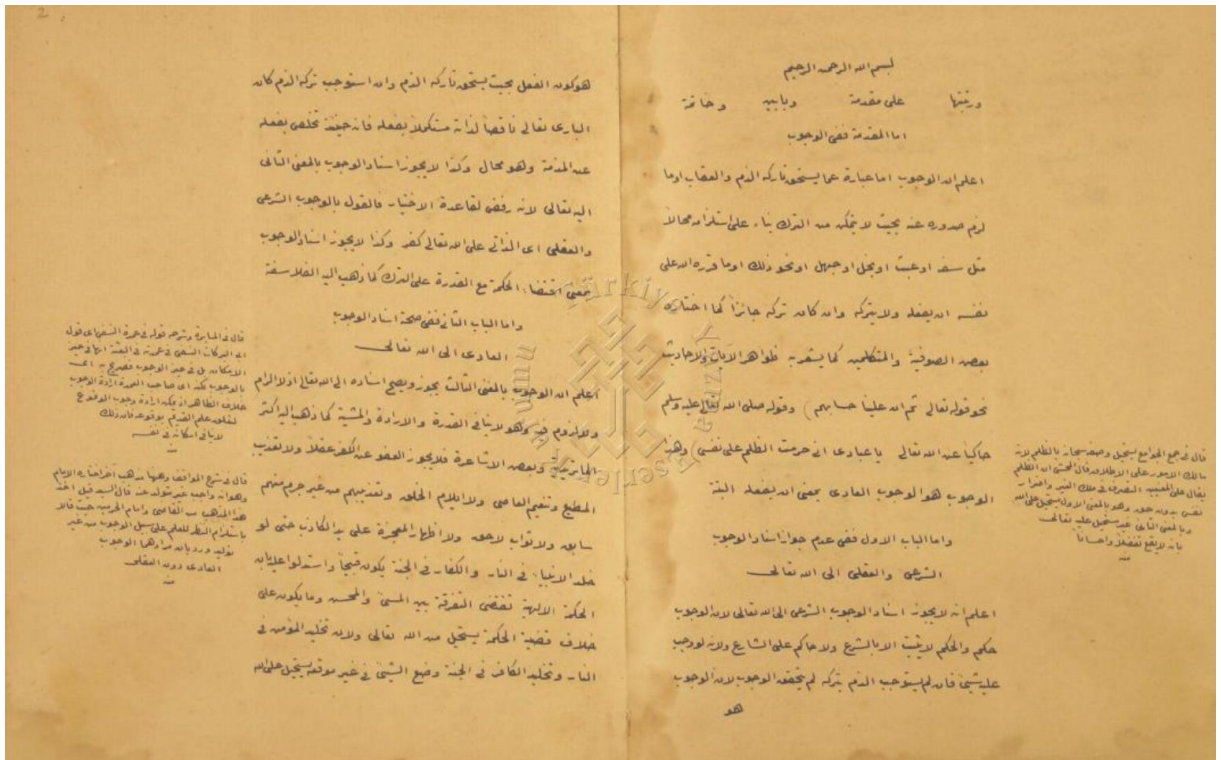 بسم الله الرحمن الرحيم
ورتبتها على مقدمة وبابين وخاتمة
اما المقدمة ففى الوجوب
اعلم ان الوجوب اما عبارة عما يستحق تاركه الذم والعقاب اوما
لزم صدوره عنه بحيث لا يتمكن من الترك بناء على استلزامه محالا
مثل سفه او عبث او بخل او جهل او نحو ذلك اوما قرره الله على
نفسه ان يفعله ولا يتركه وان كان تركه جائزا كما اختاره
بعض الصوفية والمتكلمين كما يشعر به ظواهر الآيات والاحاديث
نحو قوله تعالى ثم ان علينا حسابهم ) وقوله صلى الله تعالى عليه وسلم
حاكيا عن الله تعالى يا عبادى انى حرمت الظلم على نفسى وهذا
الوجوب هو الوجوب العادى بمعنى ان يفعله البتة
واما الباب الاول ففى عدم جواز اسناد الوجوب
الشرعى والعقلى الى الله تعالى
اعلم انه لايجوز اسناد الوجوب الشرعى الى الله تعالى لان الوجوب
حكم والحكم لايثبت الا بالشرع ولا حاكم على الشارع ولانه لو وجب
عليه شئ فان لم يستوجب الذم بتركه لم يتحقق الوجوب لان الوجوب
هو
قال فى جمع الجوامع يستحيل وصفه سبحانه بالظلم لانه
مالك الامور على الاطلاق قال المحشى ان الظلم
يقال على المعنيين التصرف فى ملك الغير واضرار
نفس بدون حق وهو بالمعنى الاول يستحيل على الله
وبالمعنى الثانى غير مستحيل عليه تعالى
بانه لايقع تفضلا واحسانا
منه
2
هو كون الفعل بحيث يستحق تاركه الذم وان استوجب تركه الذم كان
البارى تعالى ناقصا لذاته مستكملا بفعله فانه حينئذ تخلص بفعله
عن المذمة وهو محال وكذا لايجوز اسناد الوجوب بالمعنى الثانى
اليه تعالى لانه رفض لقاعدة الاختيار فالقول بالوجوب الشرعى
والعقلى اى الذاتى على الله تعالى كفر وكذا لايجوز اسناد الوجوب
بمعنى اقتضاء الحكمة مع القدرة على الترك كما ذهب اليه الفلاسفة
واما الباب الثانى ففى صحة اسناد الوجوب
العادى الى الله تعالى
اعلم ان الوجوب بالمعنى الثالث يجوز ويصح اسناده الى الله تعالى اذ لا الزام
ولا لزوم فيه وهو لاينافى القدرة والارادة والمشية كما ذهب اليه اكثر
الماتريدية وبعض الاشاعرة فلايجوز العفو عن الكفر عقلا ولا تعذيب
المطيع وتنعيم العاصى ولا ايلام الخلق وتعذيبهم من غير جرم منهم
سابق ولا ثواب لاحق ولا اظهار المعجزة على يد الكاذب حتى لو
خلد الانبياء فى النار والكفار فى الجنة يكون قبيحا واستدلوا عليه بان
الحكمة الالهية تقتضى التفرقة بين المسئ والمحسن وما يكون على
خلاف قضية الحكمة يستحيل من الله تعالى ولان تخليد المؤمن فى
النار وتخليد الكافر فى الجنة وضع الشئ فى غير موقعه يستحيل على الله
قال فى المسايرة وشرحه قوله فى عمدة النسفى اى قول
ابى البركات النسفى فى عمدته فى العقد انها فى حيز
الامكان بل فى حيز الوجوب تصريح به اى
بالوجوب لكنه اى صاحب العمدة اراد الوجوب
خلاف الظاهر اذ يمكن ارادة وجوب الوقوع
لتعلق علم القديم بوقوعه فان ذلك
لاينافى امكانه فى نفسه
منه
قال فى شرح المواقف وههنا مذهب آخر اختاره الامام
وهو انه واجب غير متولد عنه قال السيد قيل اخذ
هذا المذهب من القاضى وامام الحرمين حيث قالا
باستلزام النظر للعلم على سبيل الوجوب من غير
توليد ورد بان مرادهما الوجوب
العادى دون العقلى
منه
Türkiye Yazma Eserler Kurumu